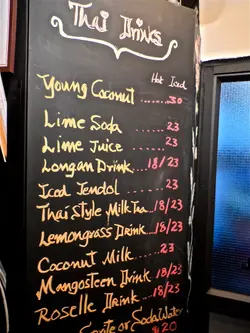 Thai Drinks
Hot Iced
Young Coconut ....... 30
Lime Soda ....... 23
Lime Juice ....... 23
Longan Drink.. 18/23
Iced Tendol ....... 23
Thai Style Milk Tea.. 18/23
Lemongrass Drink.. 18/23
Coconut Milk ..... 23
Mangosteen Drink.. 18/23
Roselle Drink.. 18/23
Sprite or Soda Water
20